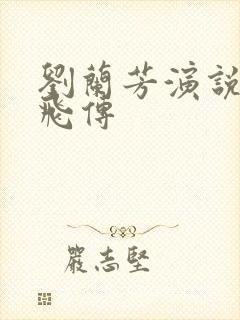 劉蘭芳演説
飛傳
嚴志堅